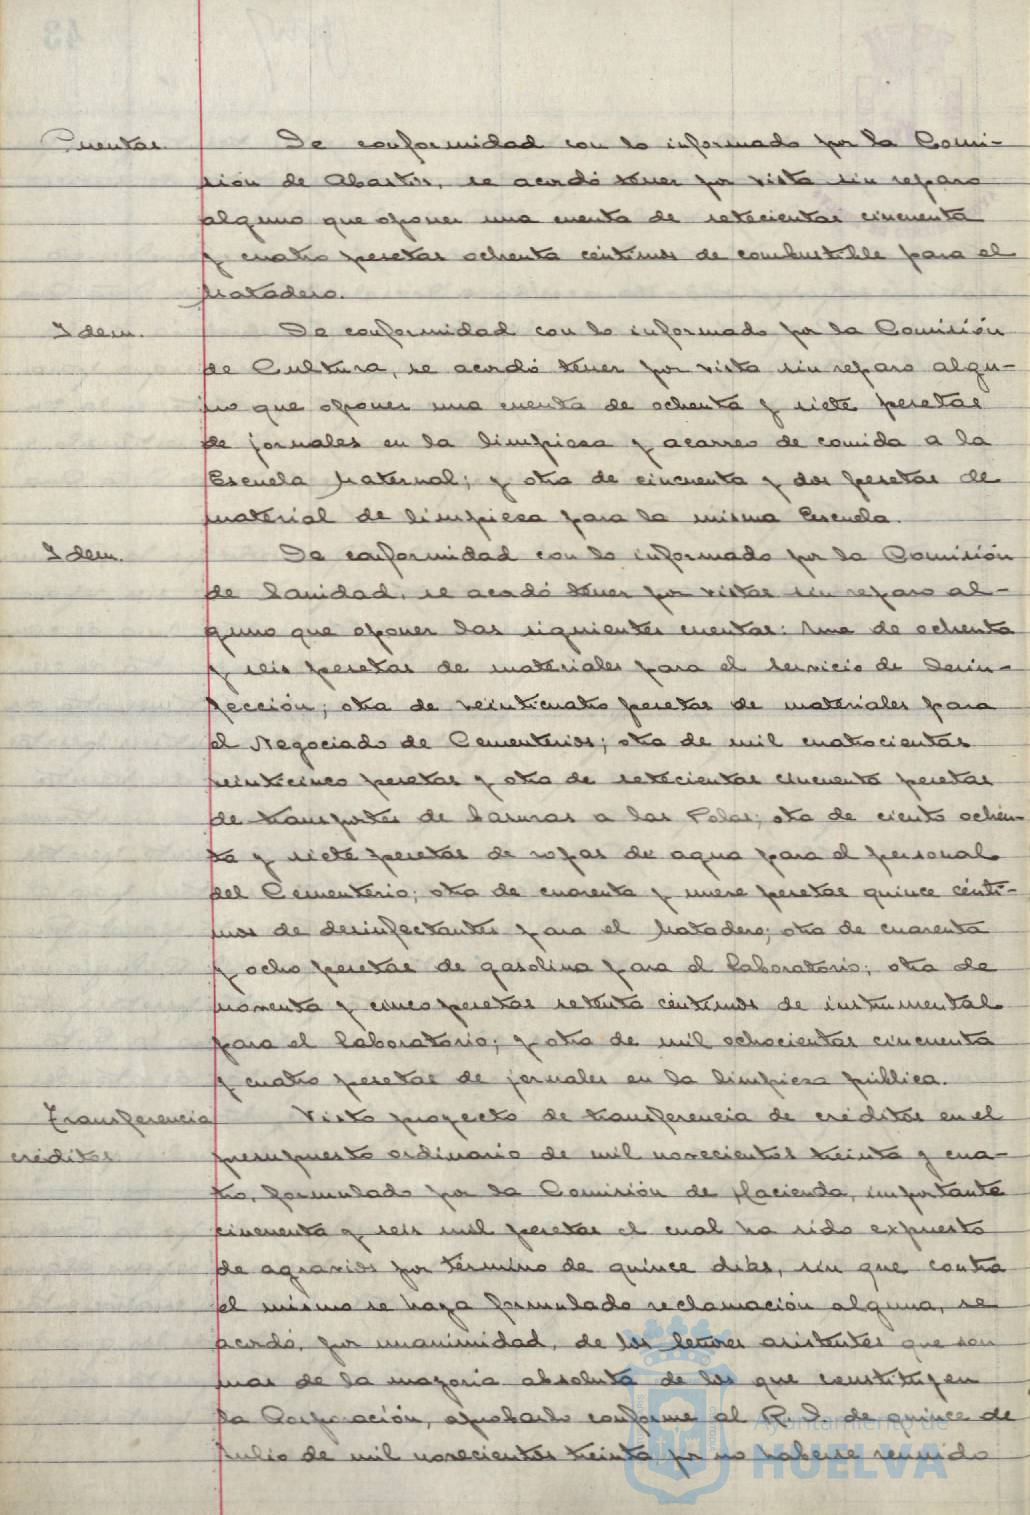 Cuentas. De conformidad con lo informado por la Comi-
sión de Abastos, se acordó tener por vista sin reparo
alguno que oponer una cuenta de setecientas cincuenta
y cuatro pesetas ochenta céntimos de combustible para el
Matadero.
Idem. De conformidad con lo informado por la Comisión
de Cultura, se acordó tener por vista sin reparo algu-
no que oponer una cuenta de ochenta y siete pesetas
de jornales en la limpiesa y acarreo de comida a la
Escuela Maternal; y otra de cincuenta y dos pesetas de
material de limpiesa para la misma Escuela.
Idem. De conformidad con lo informado por la Comisión
de Sanidad, se acordó tener por vistas sin reparo al-
guno que oponer las siguientes cuentas: Una de ochenta
y seis pesetas de materiales para el servicio de Desin-
fección; otra de veinticuatro pesetas de materiales para
el Negociado de Cementerios; otra de mil cuatrocientas
veinticinco pesetas y otra de setecientas cincuenta pesetas
de transportes de basuras a las Colas; otra de ciento ochen-
ta y siete pesetas de ropas de agua para el personal
del Cementerio; otra de cuarenta y nueve pesetas quince cénti-
mos de desinfectantes para el Matadero; otra de cuarenta
y ocho pesetas de gasolina para el Laboratorio; otra de
noventa y cinco pesetas setenta céntimos de instrumental
para el Laboratorio; y otra de mil ochocientas cincuenta
y cuatro pesetas de jornales en la limpiesa pública.
Transferencia Visto proyecto de transferencia de créditos en el
créditos presupuesto ordinario de mil novecientos treinta y cua-
tro, formulado por la Comisión de Hacienda, importante
cincuenta y seis mil pesetas el cual ha sido expuesto
de agravios por término de quince días, sin que contra
el mismo se haya formulado reclamación alguna, se
acordó, por unanimidad, de los señores asistentes que son
mas de la mayoría absoluta de los que constituyen
la Corporación, aprobarlo conforme al R. D. de quince de
Julio de mil novecientos treinta por no haberse reunido
Ayuntamiento de
HUELVA